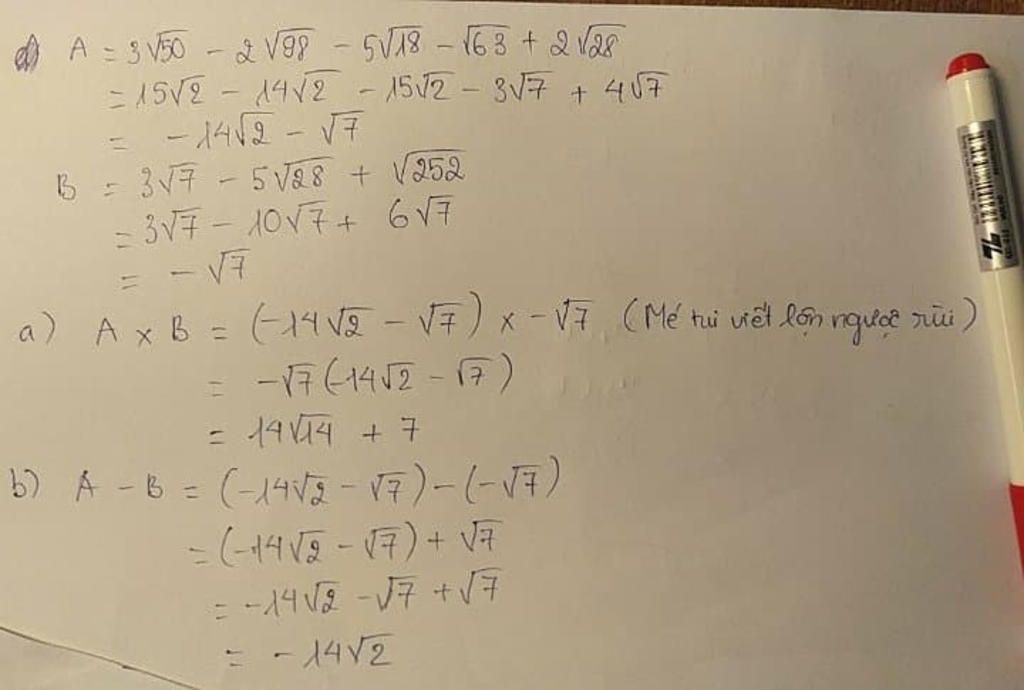 A = 3√50 - 2√98 - 5√18 - √63 + 2√28
= 15√2 - 14√2 - 15√2 - 3√7 + 4√7
= -14√2 - √7
B = 3√7 - 5√28 + √252
= 3√7 - 10√7 + 6√7
= - √7
a) A x B = (-14√2 - √7) x -√7 (Mé tui viết lộn ngược rùi)
= -√7(-14√2 - √7)
= 14√14 + 7
b) A - B = (-14√2 - √7) - (-√7)
= (-14√2 - √7) + √7
= -14√2 - √7 + √7
= -14√2